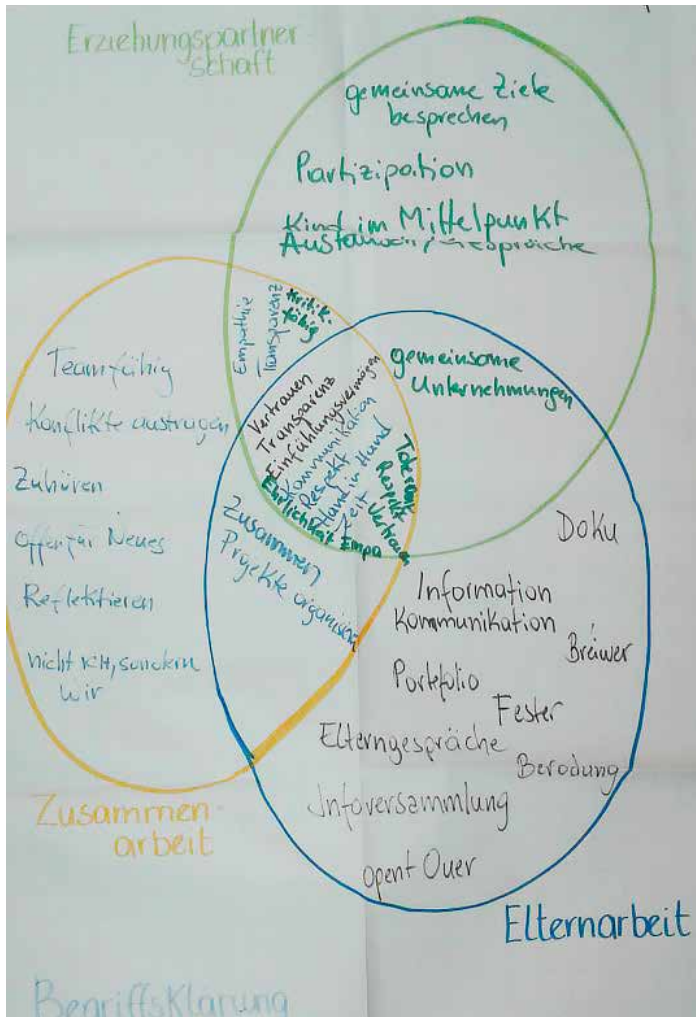 Erziehungspartner
schaft
gemeinsame Ziele
besprechen
Partizipation
Kind im Mittelpunkt
Empathie
Transparenz
Kritik-
fähig
gemeinsame
Unternehmungen
Teamfähig
Konflikte austragen
Zuhören
Offen für Neues
Reflektieren
nicht ICH, sondern
Wir
Vertrauen
Transparenz
Einfühlungsvermögen
Kommunikation
Respekt
Hand in Hand
Zeit
Ehrlichkeit Empa
Toleranz
Respekt
Vertrauen
Zusammen
Projekte organisieren
Doku
Information
Kommunikation
Bréiwer
Portfolio
Fester
Elterngespräche
Berodung
Infoversammlung
Opent Ouer
Zusammen
arbeit
Elternarbeit
Begriffsklärung